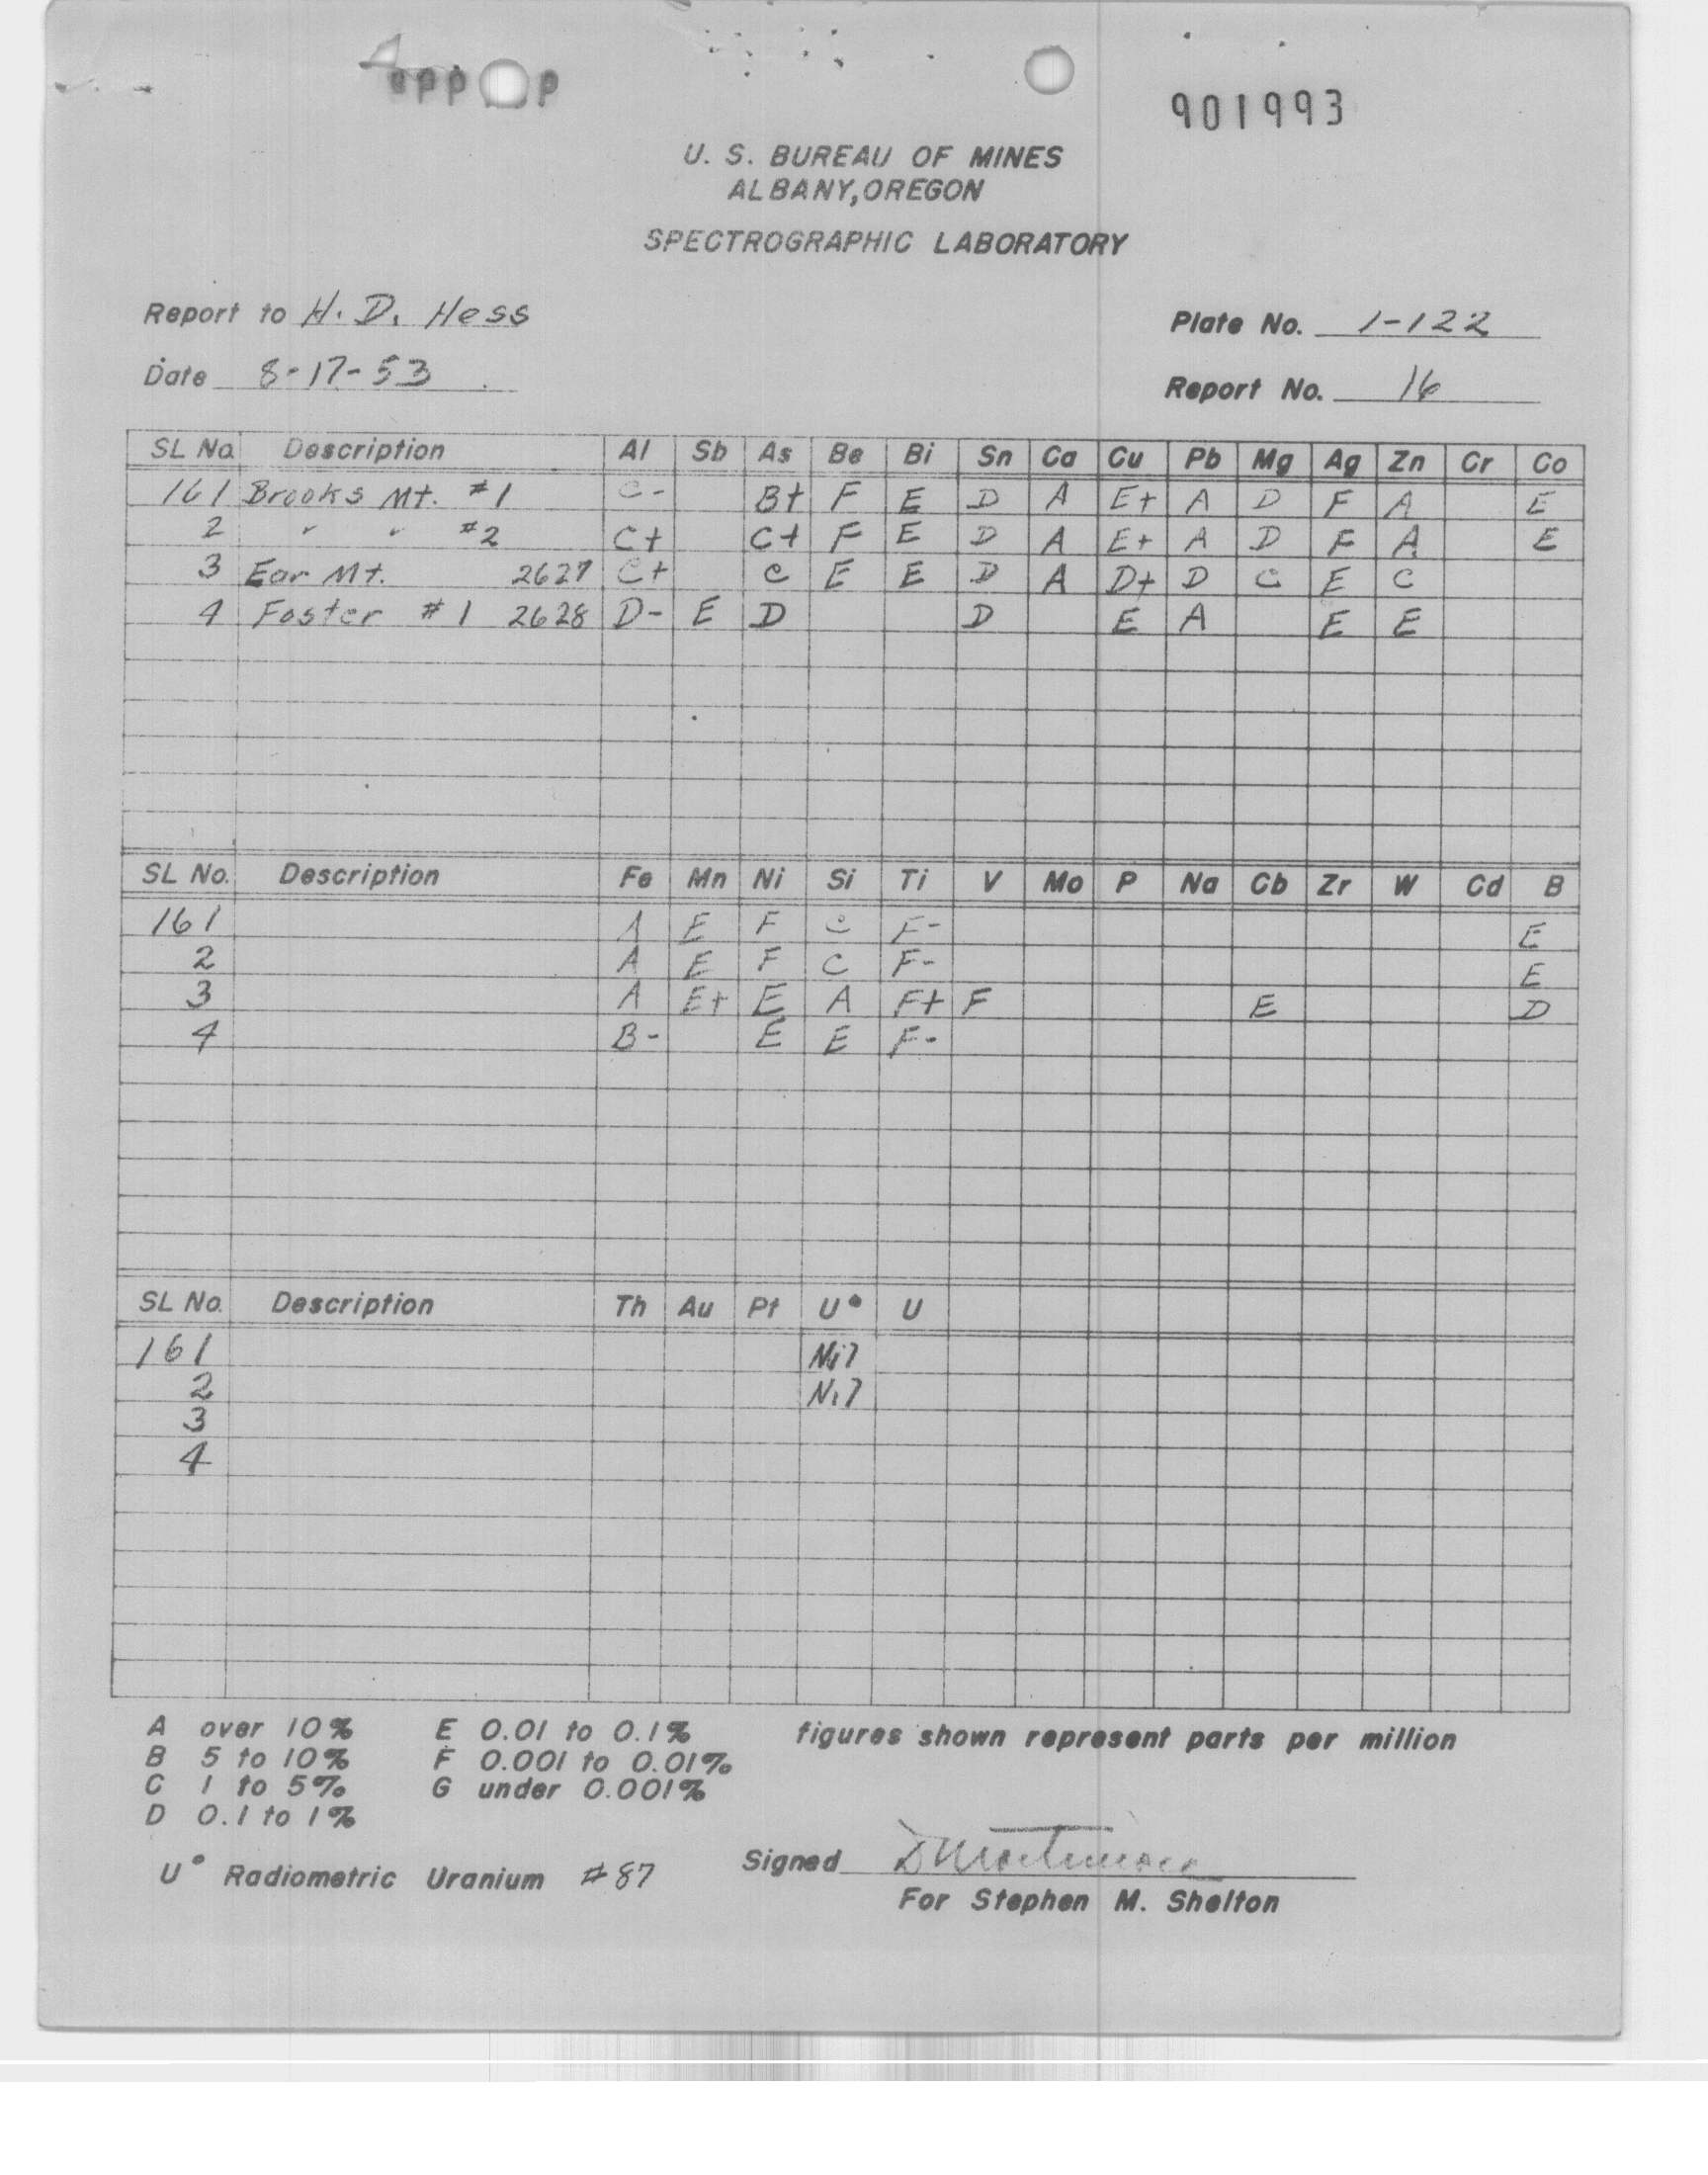 901993
U. S. BUREAU OF MINES
ALBANY, OREGON
SPECTROGRAPHIC LABORATORY
Report to H. D. Hess
Plate No. 1-122
Date 8-17-53
Report No. 16
SL No. Description Al Sb As Be Bi Sn Ca Cu Pb Mg Ag Zn Cr Co
161 Brooks Mt. #1 C- B+ F E D A E+ A D F A E
2 " " #2 C+ C+ F E D A E+ A D F A E
3 Ear Mt. 2627 C+ C E E D A D+ D C E C
4 Foster #1 2628 D- E D D E A E E
SL No. Description Fe Mn Ni Si Ti V Mo P Na Cb Zr W Cd B
161 A E F C F- E
2 A E F C F- E
3 A E+ E A F+ F E D
4 B- E E F-
SL No. Description Th Au Pt U* U
161 Nil
2 Nil
3
4
A over 10% E 0.01 to 0.1% figures shown represent parts per million
B 5 to 10% F 0.001 to 0.01%
C 1 to 5% G under 0.001%
D 0.1 to 1%
U* Radiometric Uranium #87
Signed
For Stephen M. Shelton